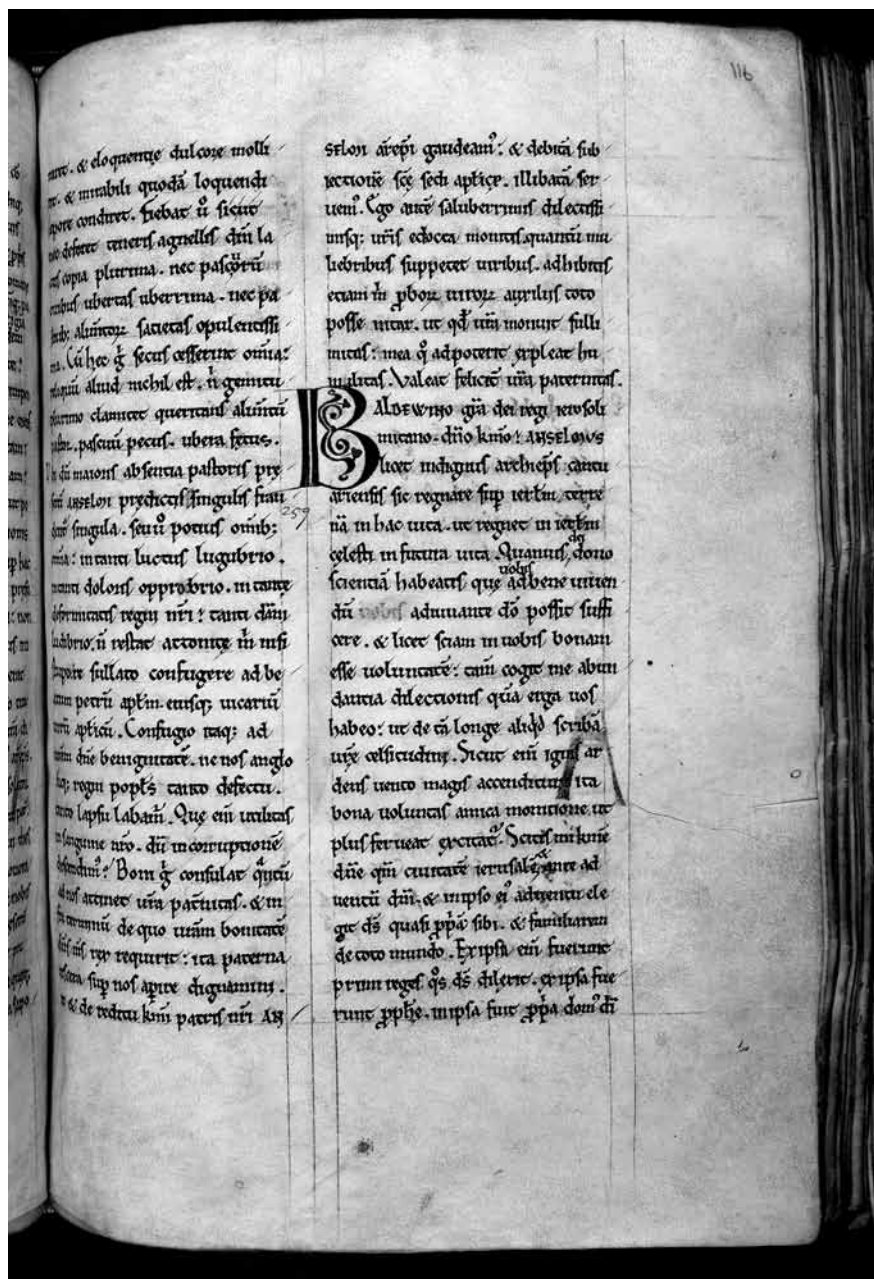 116
& eloquentię dulcore molli
& mirabili quodā loquendi
condiret. Fiebat ů sicut
deferet teneris agnellis dū la
copia plurima. nec pascorū
ubertas uberrima. nec pa
alimtoꝝ satietas opulentissi
Cū hec ḡ secus cesserint omīa:
aliud nichil est. n̄ gemitu
clamitet queritans alūmū
pascuū pecus. ubera fętus.
dū maioris absentia pastoris prę
ANSELMI prędictis singulis frau
singula. seu ů potius omīb;
in tanti luctus lugubrio.
tanti doloris opprobrio. in tantę
deformitatis regni nr̄i: tanti dāni
ludibrio: n̄ restat attonitę m̄ nisi
sullato confugere ad be
petrū apłm. eiusq; uicariū
aplicū. Confugio itaq; ad
dn̄e benignitatē. ne nos anglo
regni popłs tanto defectu.
lapsu labam̄. Quę eni utilitas
in sanguine nr̄o. dū in corruptionē
descendim̄? Boni ḡ consulat
ad nos attinet ur̄a pat̄nitas. & in
de quo ur̄am bonitatē
rex requirit: ita paterna
sup nos apire dignamini.
& de reditu kmī patris nr̄i AN
259
SELMI arepi gaudeam⁹: & debitā sub
iectionē sc̄ę sedi aplicę. illibatā ser
uem⁹. Ego autē saluberrimis dilectissi
misq; ur̄is edocta monitis. quantū mu
liebribus suppetet uiribus. adhibitis
etiam m̄ ꝓboꝝ uiroꝝ auxiliis toto
posse nitar. ut qd̄ ur̄m monuit sulli
mitas: mea ꝙ ad poterit expleat hu
militas. Valeat felicit̄ ur̄a paternitas.
BALDEWINO gr̄a dei regi ierosoli
mitano. dn̄o kmō: ANSELMUS
licet indignus archieps̄ cantu
ariensis sic regnare sup ierłm terre
nā in hac uita. ut regnet in ierłm
celesti in futura uita. Quamuis dei dono
scientiā habeatis quę uobis ad bene uiuen
dū uobis adiuuante dō possit suffi
cere. & licet sciam in uobis bonam
esse uoluntatē: tam̄ cogit me abun
dantia dilectionis quā erga uos
habeo: ut de tā longe aliqd scribā
ur̄ę celsitudini. Sicut eni ignis ar
dens uento magis accenditur ita
bona uoluntas amica monitione ut
plus ferueat excitat̄. Scitis mi kme
dn̄e qm̄ ciuitatē ierusalē & ante ad
uentū dn̄i. & in ipso ei⁹ aduentu ele
git dś quasi ꝓpā sibi. & familiarem
de toto mundo. Ex ipsa eni fuerunt
primi reges q̊s dś dilexit. ex ipsa fue
runt ꝓphę. in ipsa fuit ꝓpa dom⁹ dī